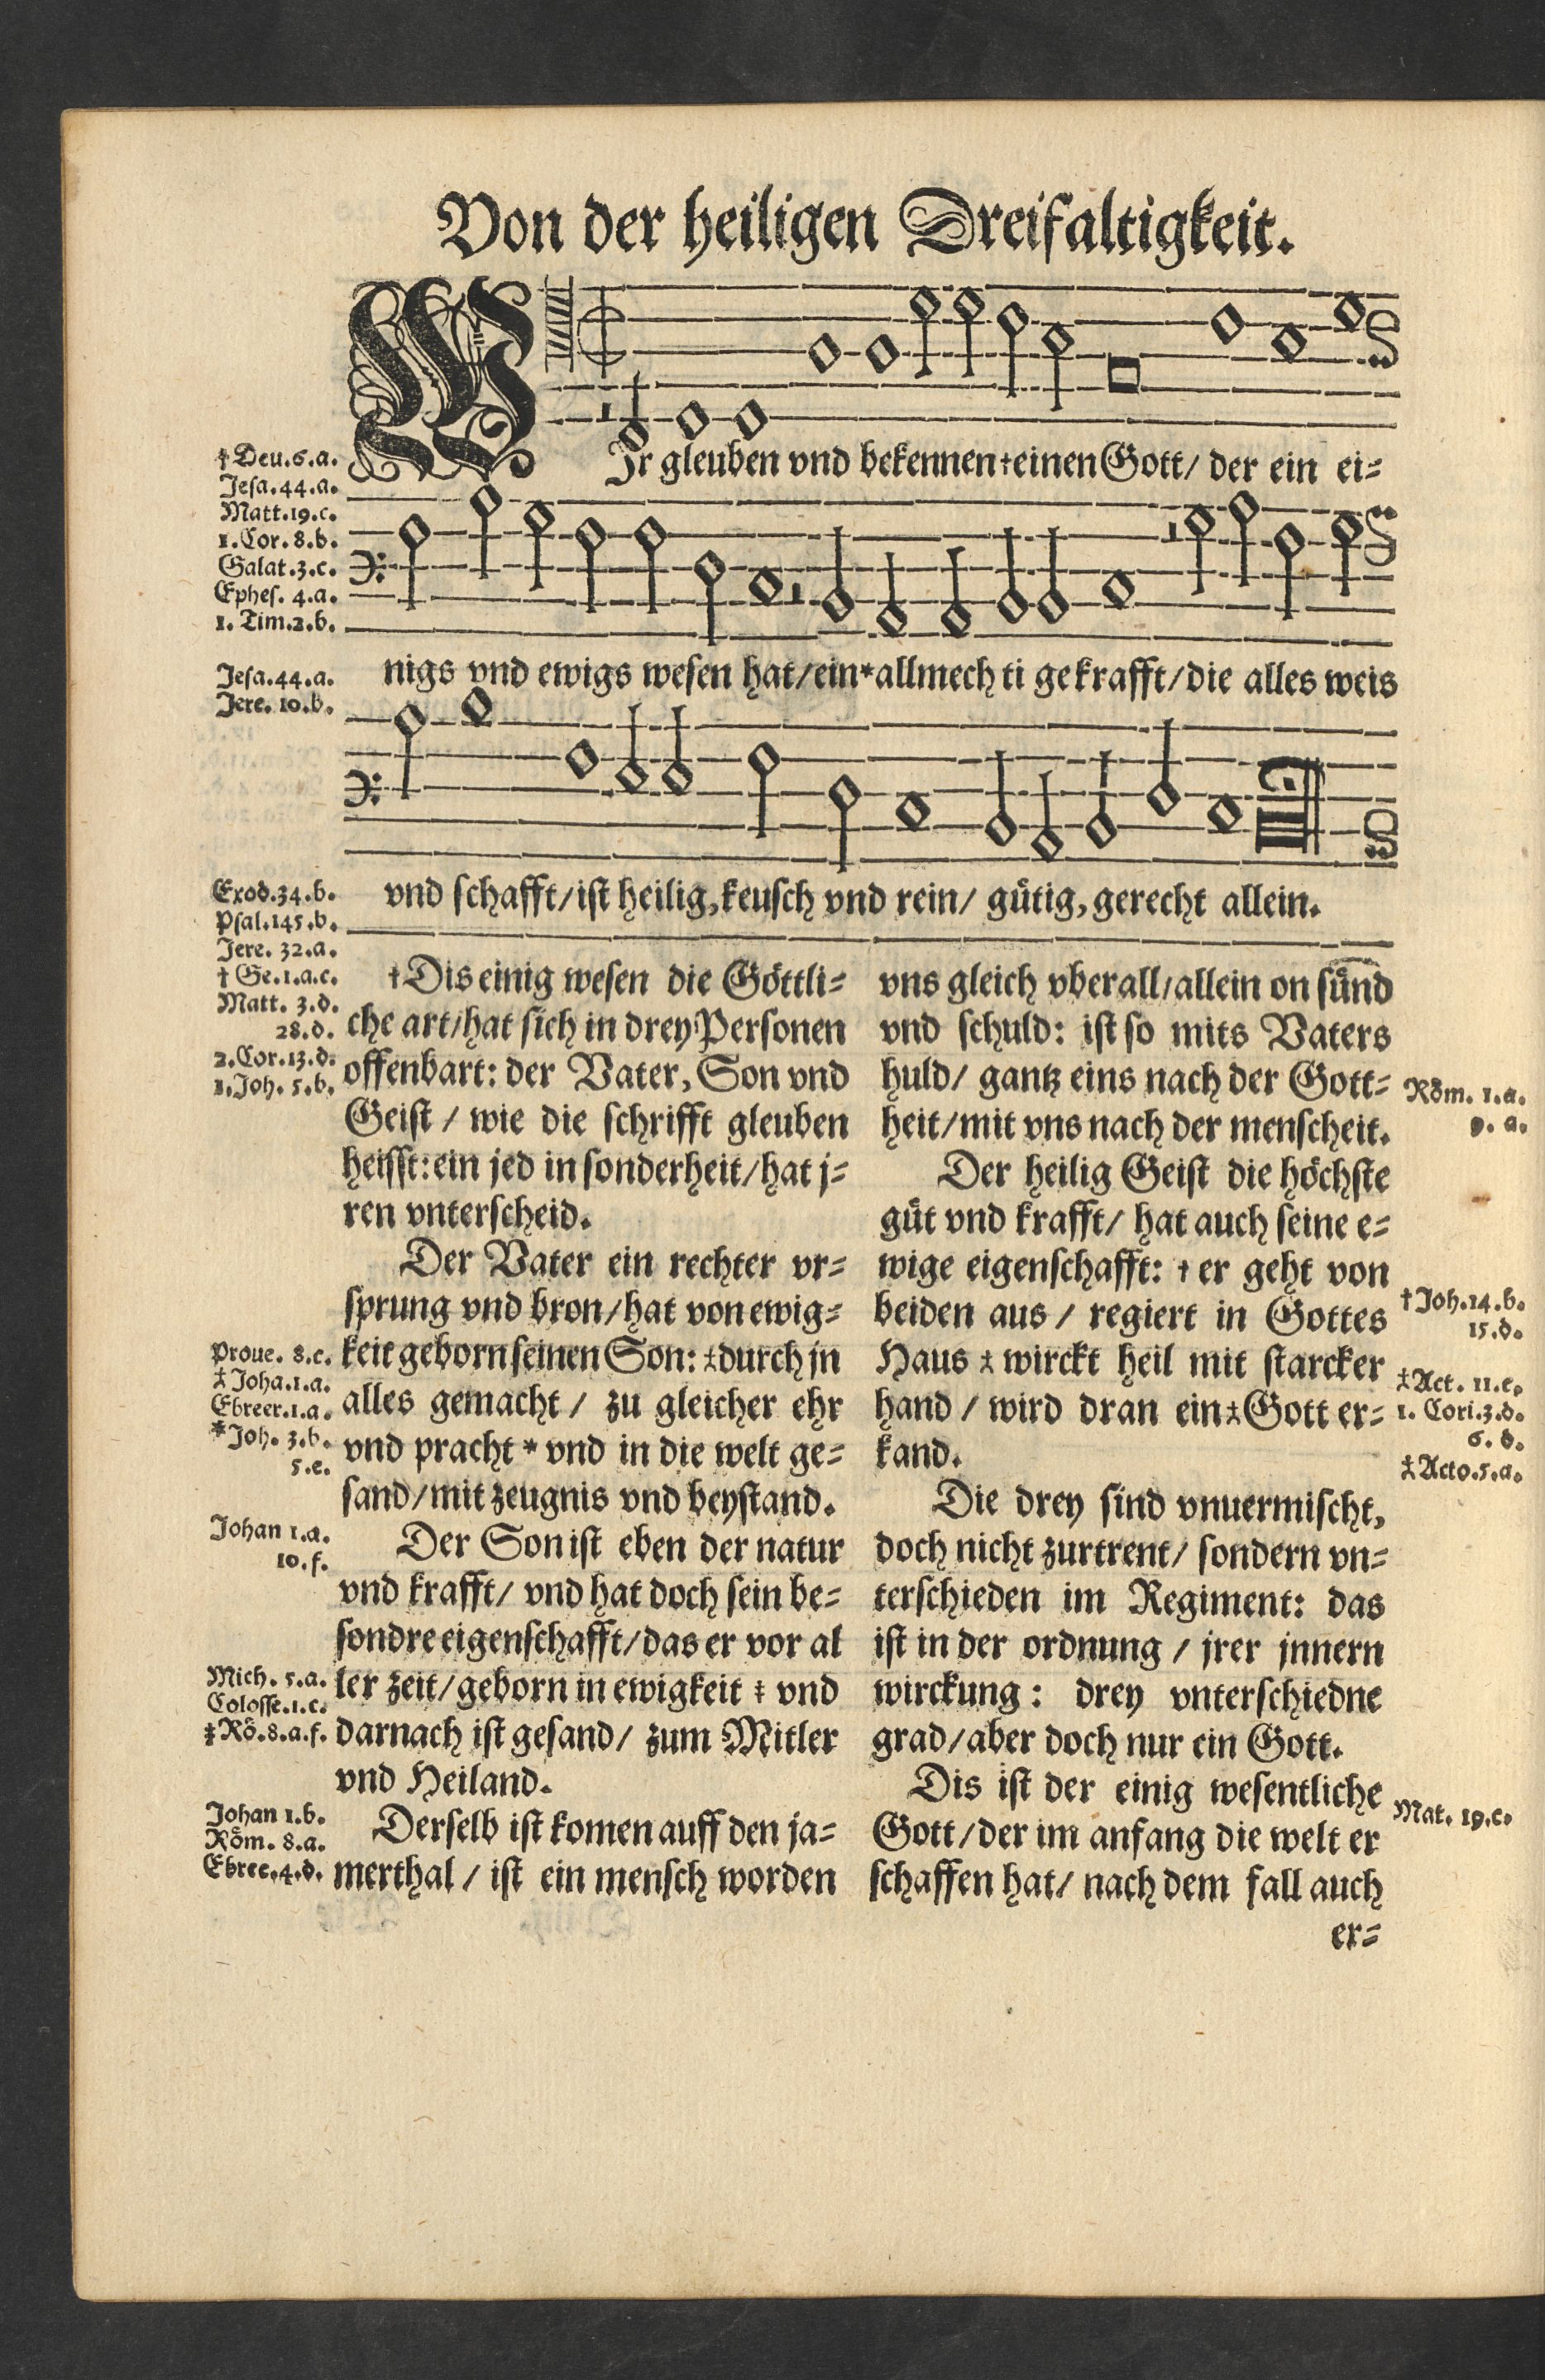 Von der heiligen Dreifaltigkeit.
WJr gleuben vnd bekennen † einen Gott/ der ein ei=
† Deu.6.a.
Jesa.44.a.
Matt.19.c.
1.Cor.8.b.
Galat.3.c.
Ephes. 4.a.
1. Tim.2.b.
nigs vnd ewigs wesen hat/ein*allmech ti ge krafft/die alles weis
Jesa.44.a.
Jere. 10.b.
vnd schafft/ist heilig, keusch vnd rein/ gütig, gerecht allein.
Exod.34.b.
Psal.145.b.
Jere. 32.a.
† Ge.1.a.c.
Matt. 3.d.
28.d.
2.Cor.13.d.
1.Joh. 5.b.
†Dis einig wesen die Göttli=
che art/hat sich in drey Personen
offenbart: der Vater, Son vnd
Geist / wie die schrifft gleuben
heisst: ein jed in sonderheit/hat j=
ren vnterscheid.
Der Vater ein rechter vr=
sprung vnd bron/hat von ewig=
keit geborn seinen Son: ‡durch jn
alles gemacht / zu gleicher ehr
vnd pracht * vnd in die welt ge=
sand/mit zeugnis vnd beystand.
Proue. 8.c.
‡ Joha.1.a.
Ebreer.1.a.
*Joh. 3.b.
5.e.
Der Son ist eben der natur
vnd krafft/ vnd hat doch sein be=
sondre eigenschafft/das er vor al
ler zeit/geborn in ewigkeit ‡ vnd
darnach ist gesand/ zum Mitler
vnd Heiland.
Johan 1.a.
10.f.
Mich. 5.a.
Colosse.1.c.
‡ Rö.8.a.f.
Derselb ist komen auff den ja=
merthal / ist ein mensch worden
Johan 1.b.
Röm. 8.a.
Ebree.4.d.
vns gleich vberall/allein on sünd
vnd schuld: ist so mits Vaters
huld/ gantz eins nach der Gott=
heit/mit vns nach der menscheit.
Röm. 1.a.
9. a.
Der heilig Geist die höchste
güt vnd krafft/ hat auch seine e=
wige eigenschafft: † er geht von
beiden aus / regiert in Gottes
Haus ‡ wirckt heil mit starcker
hand / wird dran ein ‡ Gott er=
kand.
† Joh.14.b.
15.d.
‡Act. 11.e.
1. Cori.3.d.
6. d.
‡ Acto.5.a.
Die drey sind vnuermischt,
doch nicht zurtrent/ sondern vn=
terschieden im Regiment: das
ist in der ordnung / jrer jnnern
wirckung: drey vnterschiedne
grad/aber doch nur ein Gott.
Dis ist der einig wesentliche
Gott/der im anfang die welt er
schaffen hat/ nach dem fall auch
Mat. 19.c.
er=